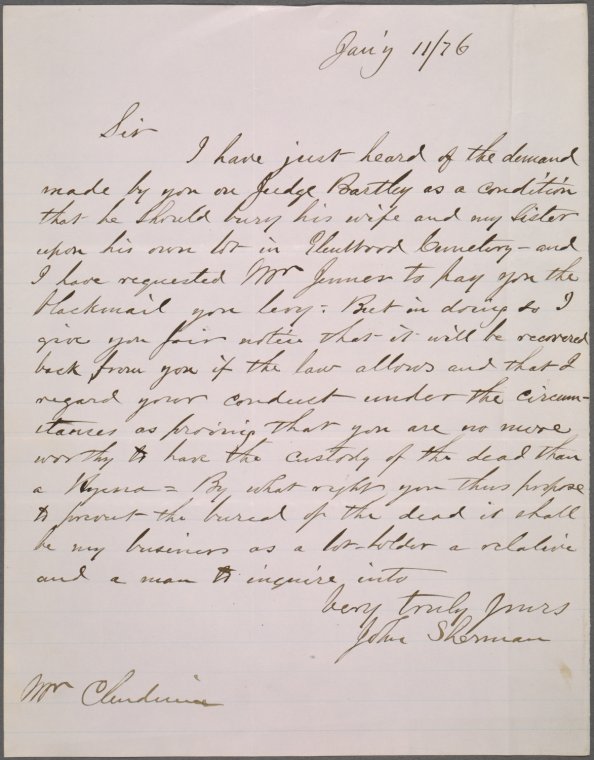 Jan'y 11/76
Sir
I have just heard of the demand
made by you on Judge Bartley as a condition
that he should bury his wife and my sister
upon his own lot in Glenwood Cemetery – and
I have requested Mr Jenner to pay you the
blackmail you levy: But in doing so I
give you fair notice that it will be recovered
back from you if the law allows and that I
regard your conduct under the circum-
stances as proving that you are no more
worthy to have the custody of the dead than
a Hyena = By what right you thus propose
to prevent the burial of the dead it shall
be my business as a lot-holder a relative
and a man to inquire into
Very truly yours
John Sherman
Mr Clendenin